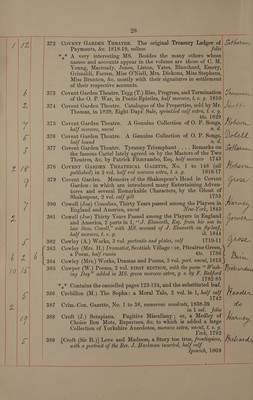 28
1 12 372 COVENT GARDEN THEATRE. The original Treasury Ledger of
Payments, &c. 1818-19, vellum folio
*** A very interesting MS. Besides the many others whose
names and accounts appear in the volume are those of C. M.
Young, Macready, Jones, Liston, Yates, Blanchard, Emery,
Grimaldi, Farren, Miss O'Neill, Mrs. Dickons, Miss Stephens,
Miss Brunton, &c. mostly with their signatures in settlement
of their respective accounts.
6 373 Covent Garden Theatre. Tegg (T.) Rise, Progress, and Termination
of the O. P. War, in Poetic Epistles, half morocco, t. e. g. 1810
2 374 Covent Garden Theatre. Catalogue of the Properties, sold by Mr.
Thomas, in 1829, Eight Days' Sale, sprinkled calf extra, t. e. g.
ib. 1829
7 375 Covent Garden Theatre. A Genuine Collection of O. P. Songs,
half morocco, uncut n. d.
5 376 Covent Garden Theatre. A Genuine Collection of O. P. Songs,
half bound n. d.
5 377 Covent Garden Theatre. Tyranny Triumphant . . . Remarks on
the famous Cartel lately agreed on by the Masters of the Two
Theatres, &c. by Patrick Fitzcrambo, Esq. half morocco 1743
2 18 378 COVENT GARDEN THEATRICAL GAZETTE, No. 1 to 146 (all
published) in 2 vol. half red morocco extra, t. e. g. 1816-17
9 379 Covent Garden. Memoirs of the Shakespear's Head in Covent
Garden: in which are introduced many Entertaining Adven-
tures and several Remarkable Characters, by the Ghost of
Shakespear, 2 vol. calf gilt 1755
7 390 Cowell (Joe) Comedian, Thirty Years passed among the Players in
England and America, uncut New-York, 1845
2 381 Cowell (Joe) Thirty Years Passed among the Players in England
and America, 2 parts in 1, "J. Elsworth, Esq. from his son in
law Sam. Cowell," with MS. account of J. Elsworth on fly-leaf,
half morocco, t. e. g. ib. 1844
5 382 Cowley (A.) Works, 3 vol. portraits and plates, calf 1710-11
6 383 Cowley (Mrs. H.) Dramatist, Scottish Village: or, Pitcairne Green,
a Poem, half russia 4to. 1786
6 6 384 Cowley (Mrs.) Works, Dramas and Poems, 3 vol. port. uncut, 1813
10 15 385 Cowper (W.) Poems, 2 vol. FIRST EDITION, with the poem "Wash-
ing Day" added in MS. green morocco extra, g. e. by F. Bedford
1782-85
*** Contains the cancelled pages 123-124, and the substituted leaf.
5 386 Crebillon (M.) The Sopha: a Moral Tale, 2 vol. in 1, half calf
1742
2 387 Crim. Con. Gazette, No. 1 to 38, numerous woodcuts, 1838-39
in 1 vol. folio
19 388 Croft (J.) Scrapiana. Fugitive Miscellany; or, a Medley of
Choice Bon Mots, Repartees, &c. to which is added a large
Collection of Yorkshire Anecdotes, morocco extra, uncut, t. e. g.
York, 1792
5 389 [Croft (Sir H.)] Love and Madness, a Story too true, frontispiece,
with a portrait of the Rev. J. Hackman inserted, half calf
Ipswich, 1809